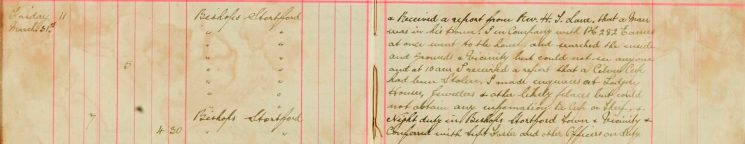 Friday 11 Bishops Stortford & Received a report from Rev. H. S. Lane, that a man
March 31st " " was in his House. I in Company with PC 282
" " at once went to the house and searched the inside
" " and grounds & Vicinity but could not see anyone
5 " " and at 10 am I received a report that a Silver Cup
" " had been Stolen. I made enquiries at Lodging
" " Houses, Jewellers & other likely places but could
" " not obtain any information to Cup or thief. &
7 Bishops Stortford Night duty in Bishops Stortford Town & Vicinity &
4 30 " " Conferred with and other Officers on duty